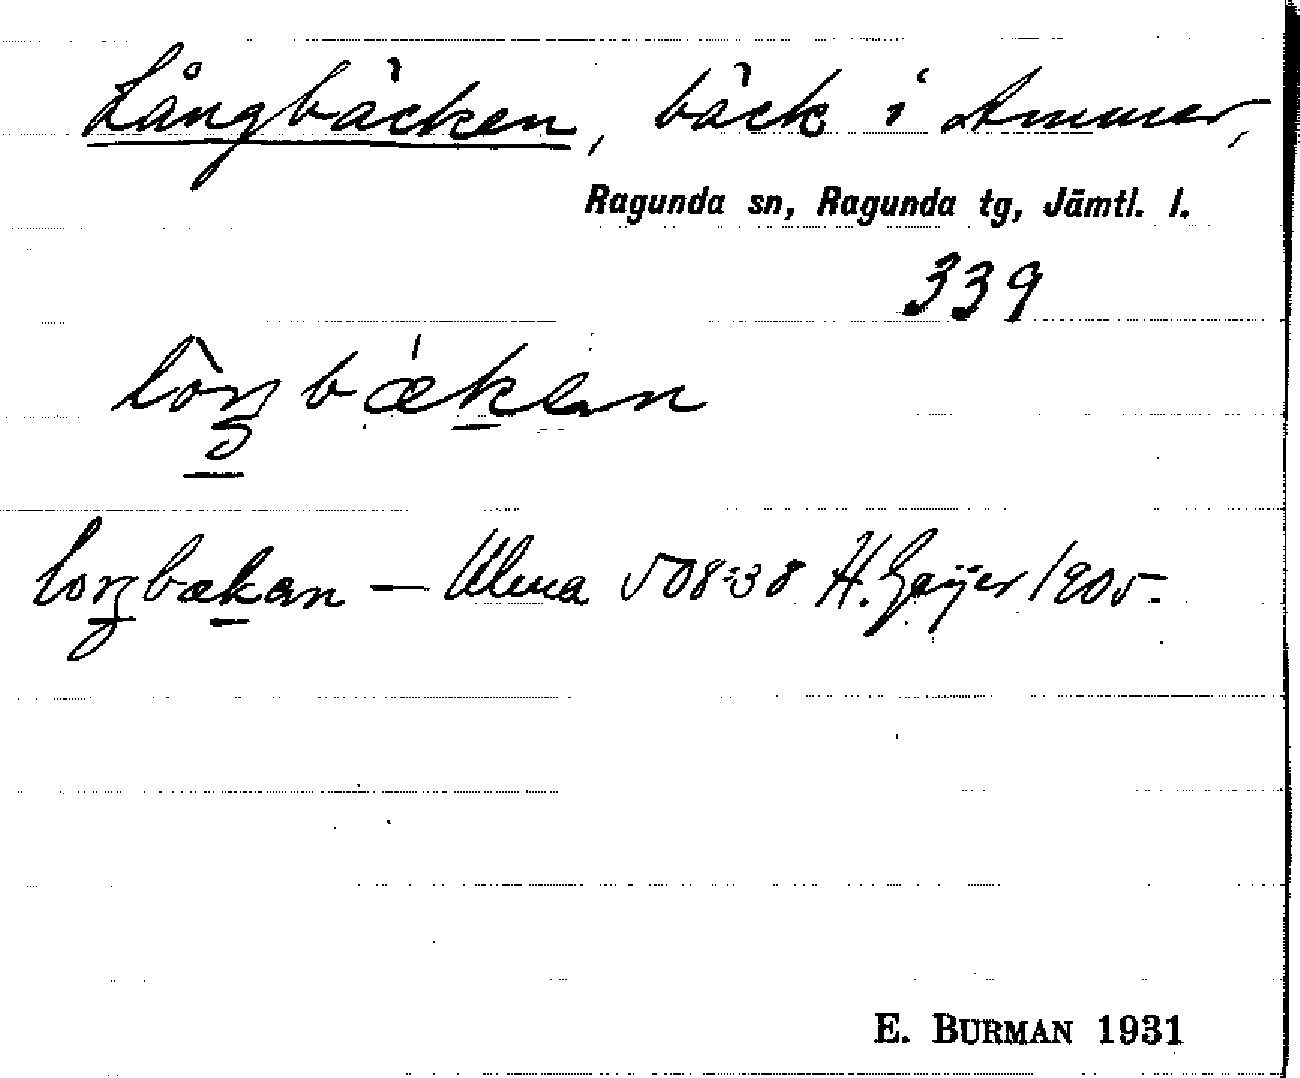 Långbäcken, bäck i Ammer,
Ragunda sn, Ragunda tg, Jämtl. l.
339
Ulma 508:38 H. Geijer 1905.
E. BURMAN 1931